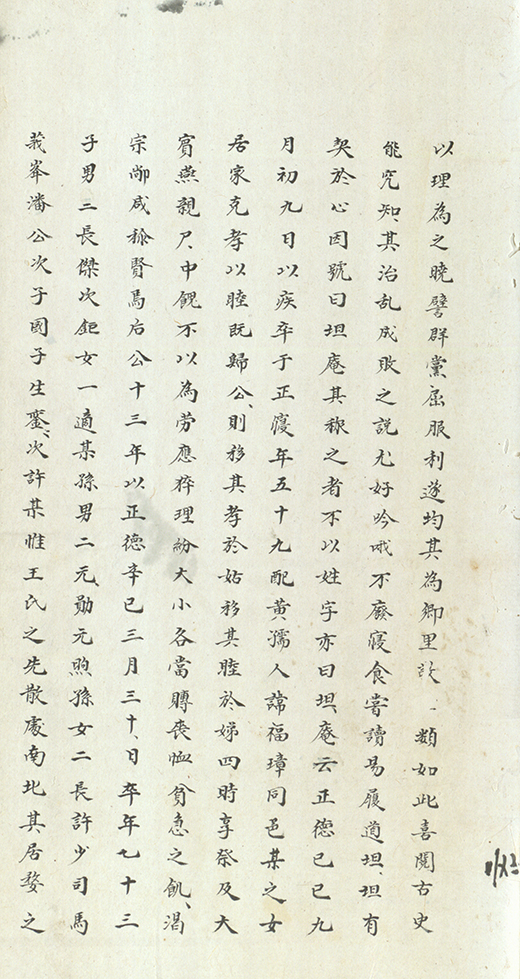 以理為之曉譬群黨屈服利遂均其為鄉里 類如此喜閱古史
能究知其治乱成敗之說尤好吟哦不廢寢食嘗讀易履道坦坦有
契於心因號曰坦庵其稱之者不以姓字亦曰坦庵云正德己巳九
月初九日以疾卒于正寢年五十九配黃孺人諱福璋同邑某之女
居家克孝以睦既歸公則移其孝於姑移其睦於娣四時享祭及大
賓燕親尺中饋不以為勞應猝理紛大小各當賻喪恤貧急之飢渴
宗鄙咸稱賢焉后公十三年以正德辛巳三月三十日卒年七十三
子男二長傑次鉅女一適某孫男二元勛元煦孫女二長許少司馬
莪峯潘公次子國子生鑾次許某惟王氏之先散處南北其居婺之